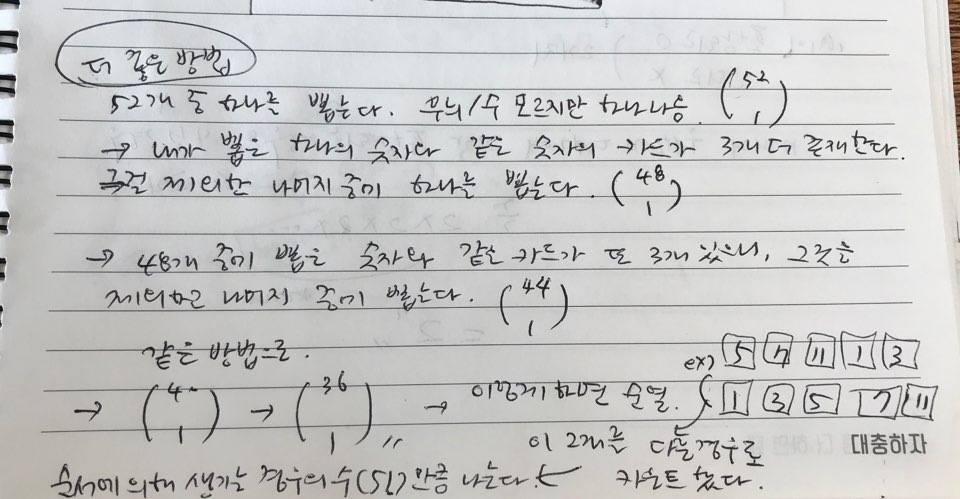 더 좋은 방법
52개 중 하나를 뽑는다. 무늬/수 모르지만 하나 나옴 (52 1)
→ 내가 뽑은 하나의 숫자와 같은 숫자의 카드가 3개 더 존재한다.
그걸 제외한 나머지 중에 하나를 뽑는다. (48 1)
→ 48개 중에 뽑은 숫자와 같은 카드가 또 3개 있으니, 그것을
제외하고 나머지 중에 뽑는다. (44 1)
같은 방법으로.
ex) 5 7 11 1 3
→ (40 1) → (36 1) → 이렇게 하면 순열. 1 3 5 7 11
이 2개를 다른 경우로 대충하자
순서에 의해 생기는 경우의 수(5!)만큼 나눈다. ← 카운트 했다.